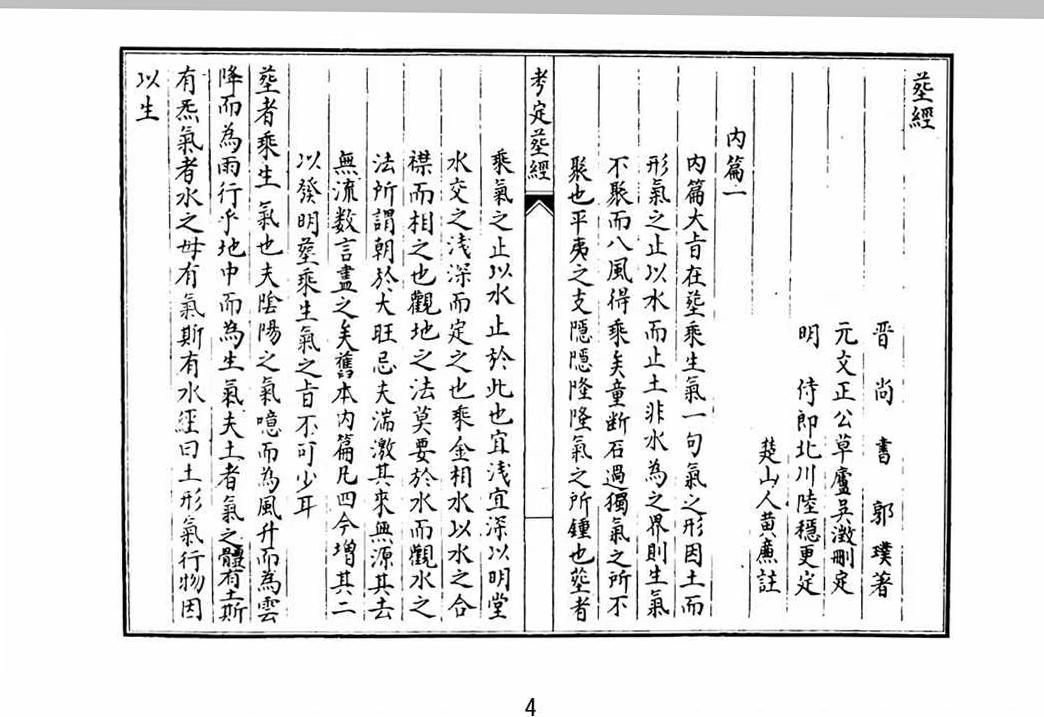 葬經
晋尚書郭璞著
元文正公草廬吳澂刪定
明 侍郎北川陸穩更定
楚山人黄䖍註
内篇一
内篇大㫖在葬乘生氣一句氣之形因土而
形氣之止以水而止土非水為之界則生氣
不聚而八風得乘矣童断石過獨氣之所不
聚也平夷之支隱隱隆隆氣之所鍾也葬者
考定葬經
乘氣之止以水止於此也宜浅宜深以明堂
水交之浅深而定之也乘金相水以水之合
襟而相之也觀地之法莫要於水而觀水之
法所謂朝於大旺忌夫湍激其來無源其去
無流数言盡之矣舊本内篇凡四今增其二
以發明葬乘生氣之㫖不可少耳
葬者乘生氣也夫陰陽之氣噫而為風升而為雲
降而為雨行乎地中而為生氣夫土者氣之體有土斯
有炁氣者水之毋有氣斯有水經曰土形氣行物因
以生
4